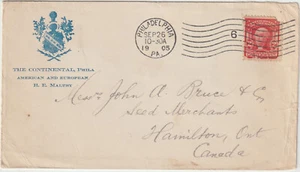 THE CONTINENTAL, PHILA
AMERICAN AND EUROPEAN
PHILADELPHIA
SEP 26
10-30A
1903
PA.
6
Messrs John A Bruce & Co
Seed Merchants
Hamilton, Ont
Canada